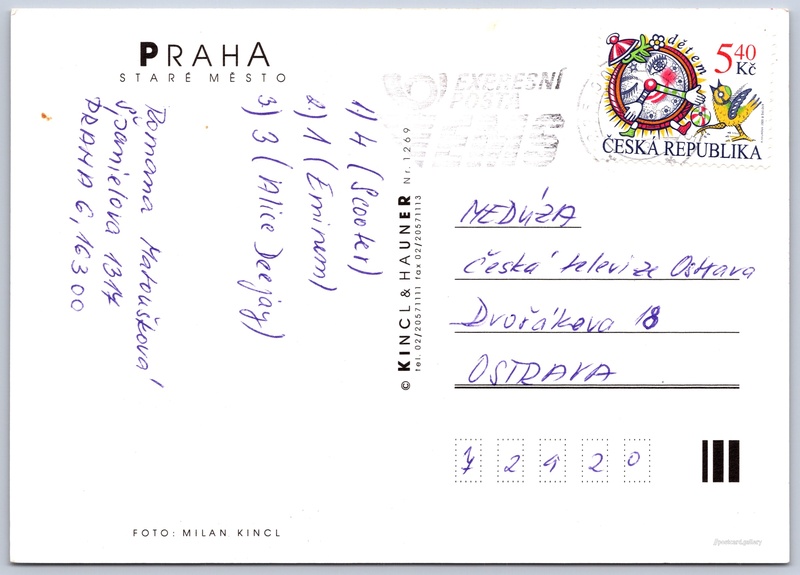 PRAHA
STARÉ MĚSTO
Romana Matoušková
Španielova 1317
PRAHA 6, 163 00
1) 4 (Scooter)
2) 1 (Eminem)
3) 3 (Alice Deejay)
© KINCL & HAUNER Nr. 1269
tel. 02/20571111 fax 02/20571113
EXPRESNÍ
POŠTA
EMS
dětem
5 40
Kč
ČESKÁ REPUBLIKA
MEDÚZA
Česká televize Ostrava
Dvořákova 18
OSTRAVA
7 2 9 2 0
FOTO: MILAN KINCL